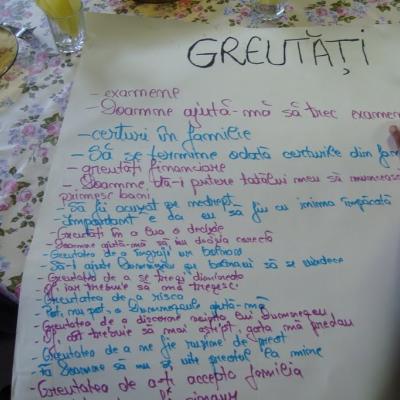 GREUTĂȚI
- examene
- Doamne ajută-mă să trec examen
- certuri în familie
- Să se termine odată certurile din fam
- greutăți financiare
- Doamne, dă-i putere tatălui meu să muncească
primesc bani
- Să fii acuzat pe nedrept
- Important e da eu să fiu cu inima împăcată
- Greutăți în a lua o decizie
- Doamne ajută-mă să iau decizia corectă
- Greutatea de a îngriji un bolnav
- Să-l ajute Dumnezeu pe bolnavi să se vindece
- Greutatea de a se trezi dimineața
- Și iar trebuie să mă trezesc
- Greutatea de a risca
- Pot, nu pot, o Dumnezeule ajută-mă
- Greutatea de a discerne voința lui Dumnezeu
- Și cât trebuie să mai aștept, gata mă predau
- Greutatea de a ne fie rușine de preot
- Fă Doamne să nu se uite preotul la mine
- Greutatea de a-ți accepta familia